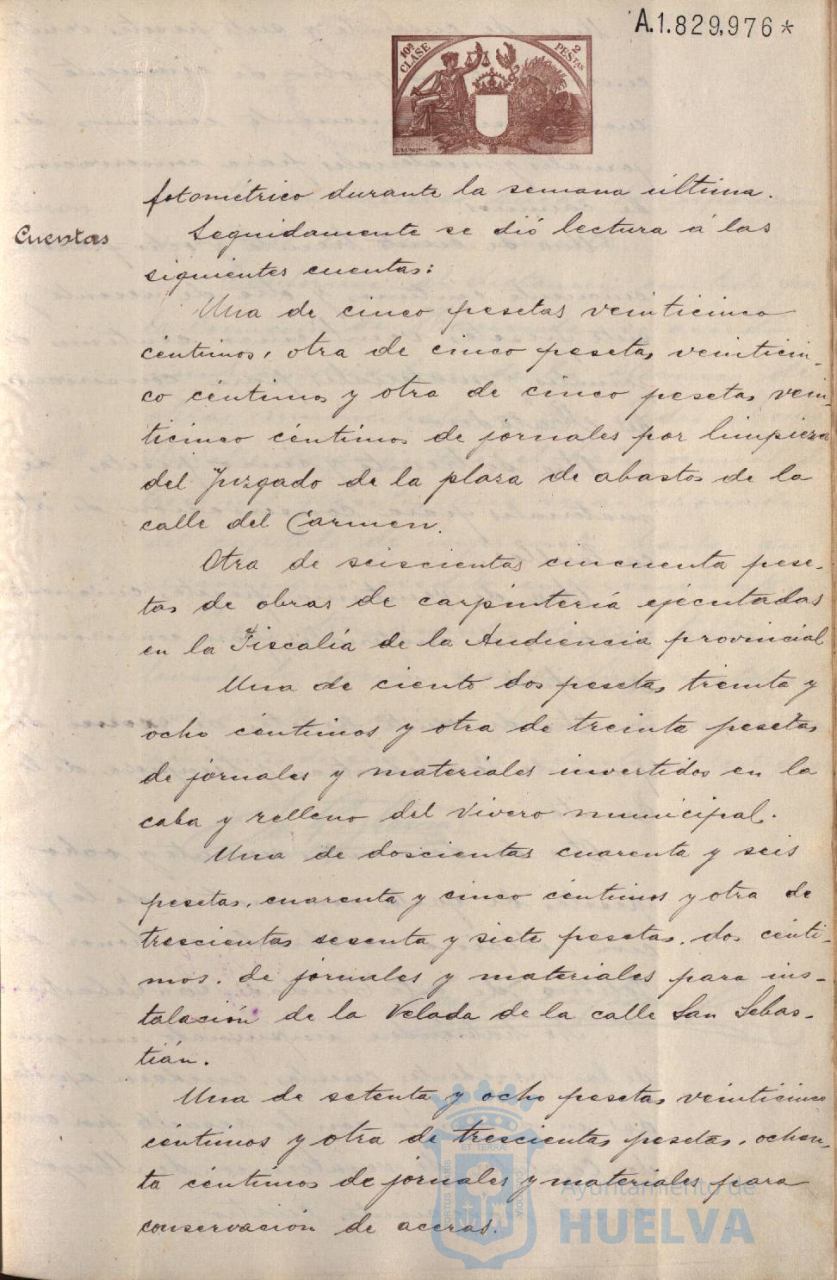 A.1.829.976*
10ª CLASE
2 PESTAS
fotométrico durante la semana última.
Cuentas
Seguidamente se dió lectura á las
siguientes cuentas:
Una de cinco pesetas veinticinco
céntimos, otra de cinco pesetas veinticin-
co céntimos y otra de cinco pesetas vein-
ticinco céntimos de jornales por limpieza
del Juzgado de la plaza de abastos de la
calle del Carmen.
Otra de seiscientas cincuenta pese-
tas de obras de carpintería ejecutadas
en la Fiscalía de la Audiencia provincial
Una de ciento dos pesetas treinta y
ocho céntimos y otra de treinta pesetas
de jornales y materiales invertidos en la
caba y relleno del vivero municipal.
Una de doscientas cuarenta y seis
pesetas, cuarenta y cinco céntimos y otra de
trescientas sesenta y siete pesetas, dos cénti-
mos, de jornales y materiales para ins-
talación de la Velada de la calle San Sebas-
tián.
Una de setenta y ocho pesetas veinticinco
céntimos y otra de trescientas pesetas, ochen-
ta céntimos de jornales y materiales para
conservación de aceras.
Ayuntamiento de
HUELVA